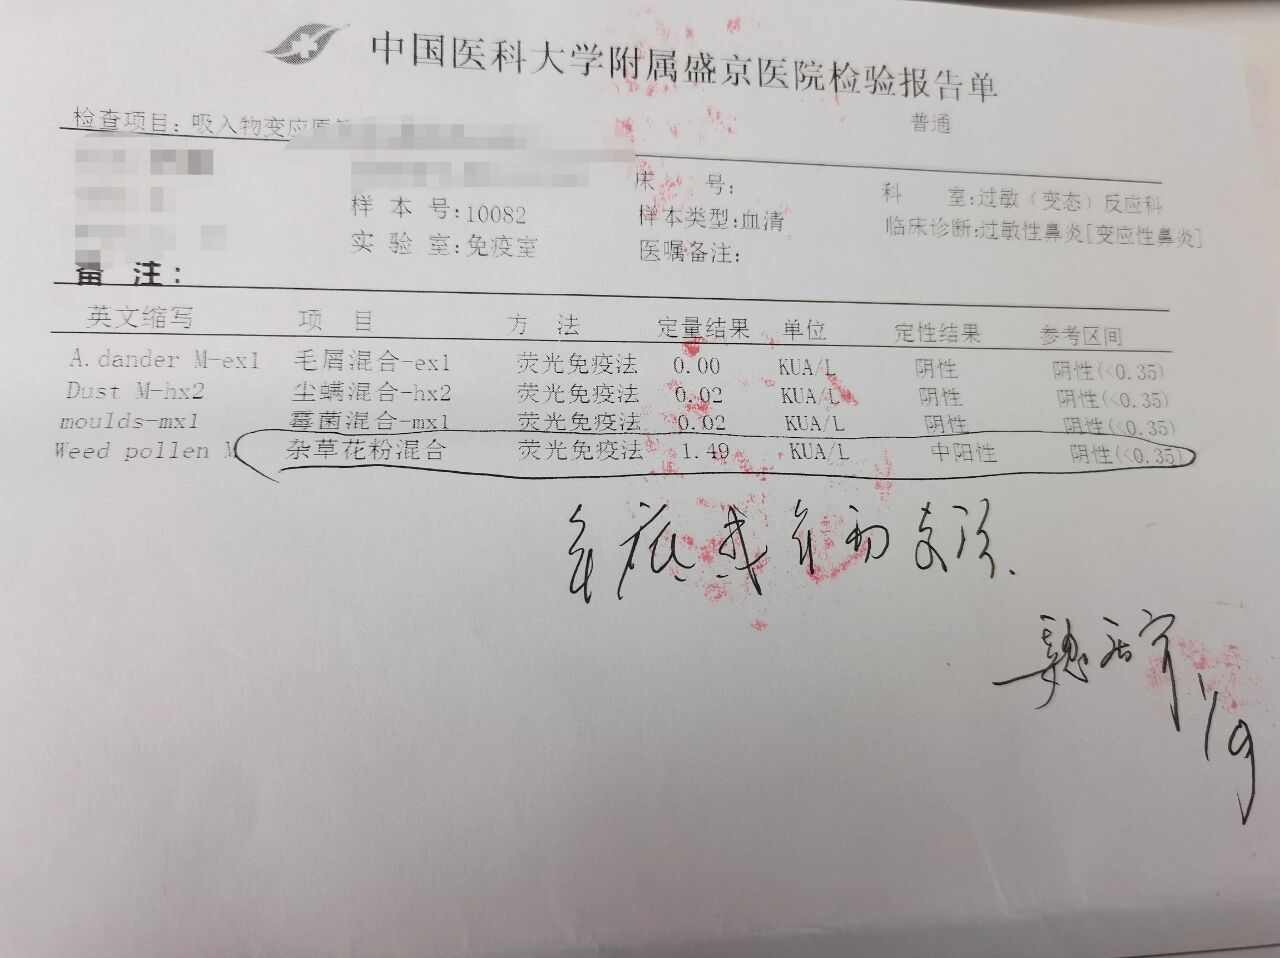 中国医科大学附属盛京医院检验报告单
检查项目：吸入物变应原 普通
床 号： 科 室：过敏（变态）反应科
样 本 号：10082 样本类型：血清 临床诊断：过敏性鼻炎[变应性鼻炎]
实 验 室：免疫室 医嘱备注：
备 注：
英文缩写 项 目 方 法 定量结果 单位 定性结果 参考区间
A.dander M-ex1 毛屑混合-ex1 荧光免疫法 0.00 KUA/L 阴性 阴性(<0.35)
Dust M-hx2 尘螨混合-hx2 荧光免疫法 0.02 KUA/L 阴性 阴性(<0.35)
moulds-mx1 霉菌混合-mx1 荧光免疫法 0.02 KUA/L 阴性 阴性(<0.35)
Weed pollen M 杂草花粉混合 荧光免疫法 1.49 KUA/L 中阳性 阴性(<0.35)
1/9